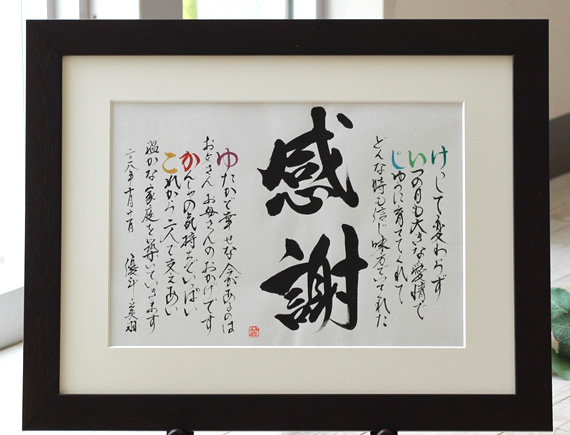 けっして変わらず
いつの日も大きな愛情で
じゆうに育ててくれて
どんな時も信じ味方でいてくれた
感謝
ゆたかで幸せな今があるのは
お父さんお母さんのおかげです
かんしゃの気持ちでいっぱい
これから二人で支えあい
温かな家庭を築いていきます
二〇一八年十月十一日 優斗・美羽